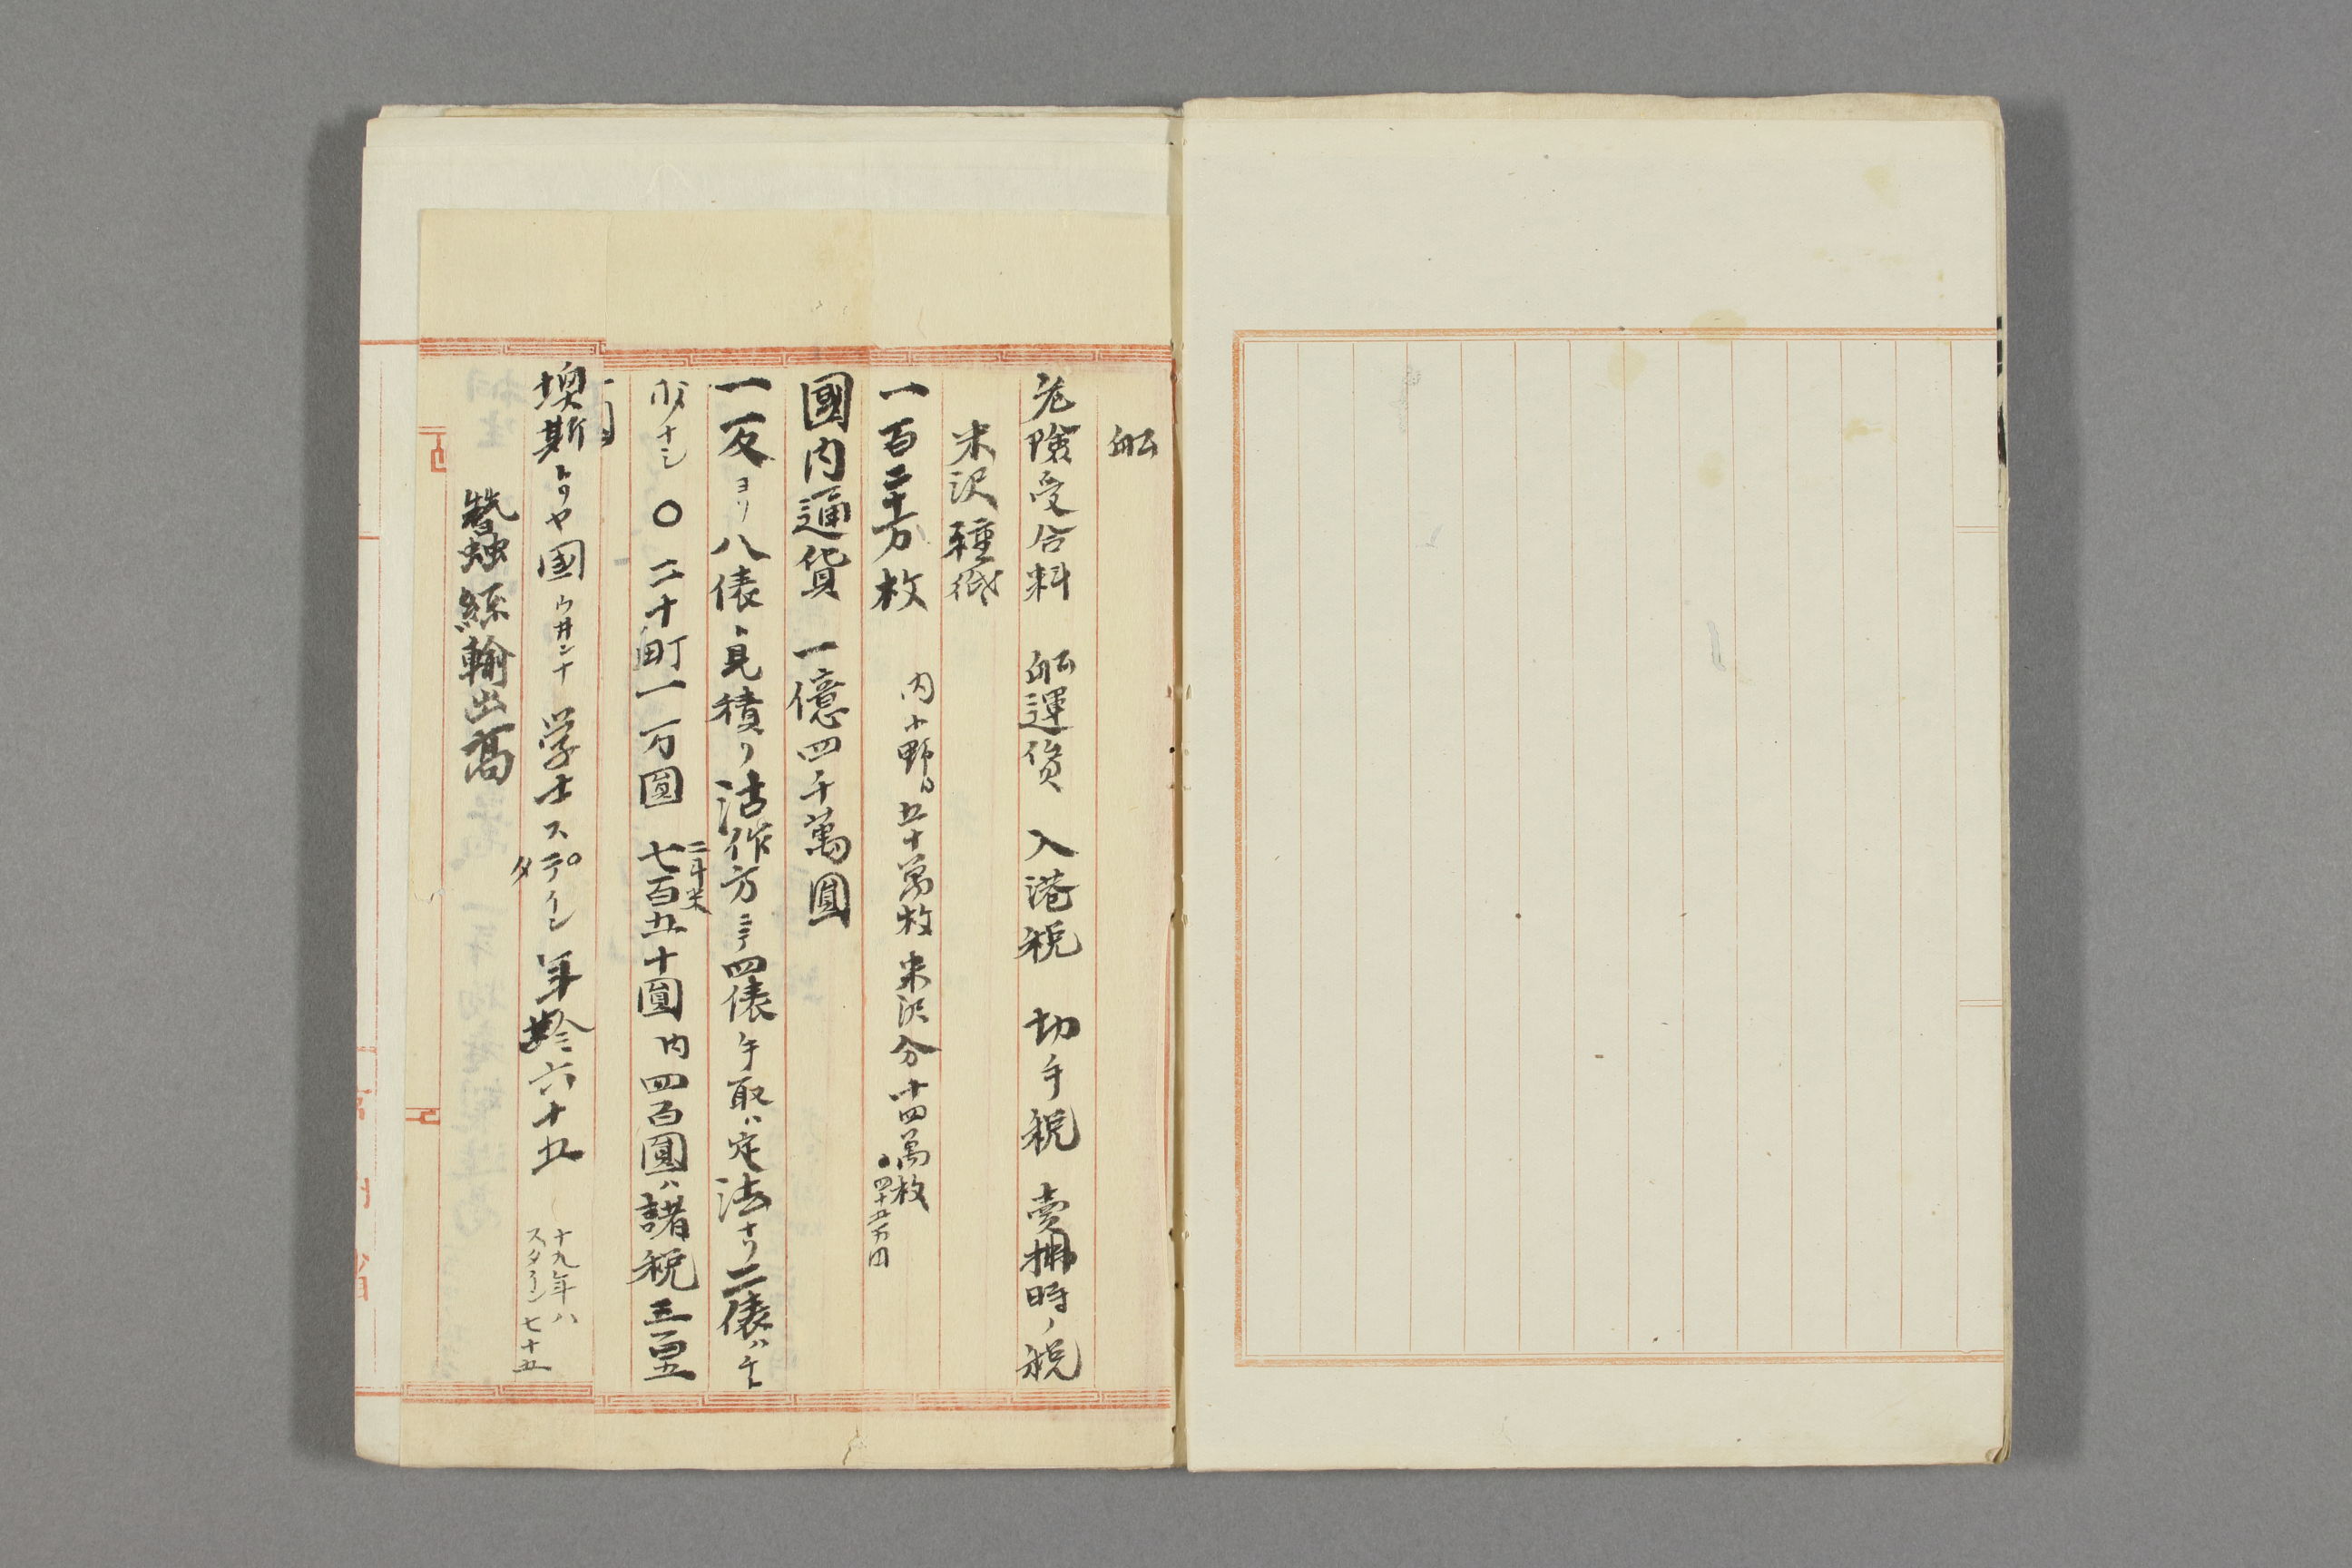 舩
危険受合料 舩運賃 入港税 切手税 賣拂時ノ税
米沢種紙
一百二十万枚 内小野 五十萬枚 米沢分十四萬枚
四十五万円
國内通貨 一億四千萬圓
一反ヨリ八俵ト見積リ沽作方ニテ四俵 取ハ定法ナリ二俵ハ
〇 二十町一万圓 七百五十圓内四百圓ハ諸税三百五
二斗米
墺斯トリヤ國ウ井ンナ 学士ステイン 年齢六十五
タ
十九年ハ
スタイン七十五
蚕絲輸出高